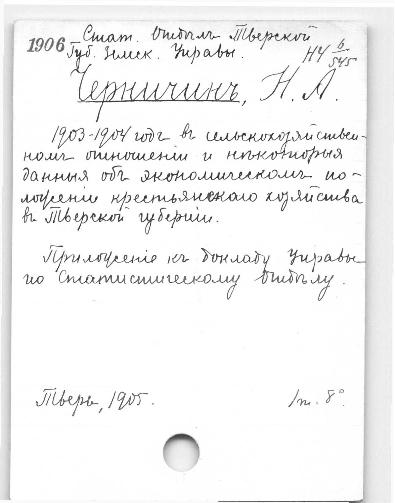 1906 Стат. Отдѣлъ Тверской
Губ. Земск. Управы. НЧ 6/545
Черничинъ, Н. А.
1903-1904 годъ въ сельскохозяйствен-
номъ отношеніи и нѣкоторыя
данныя объ экономическомъ по-
ложеніи крестьянскаго хозяйства
въ Тверской губерніи.
Приложеніе къ докладу Управы
по Статистическому Отдѣлу.
Тверь, 1905. 1 т. 8°.